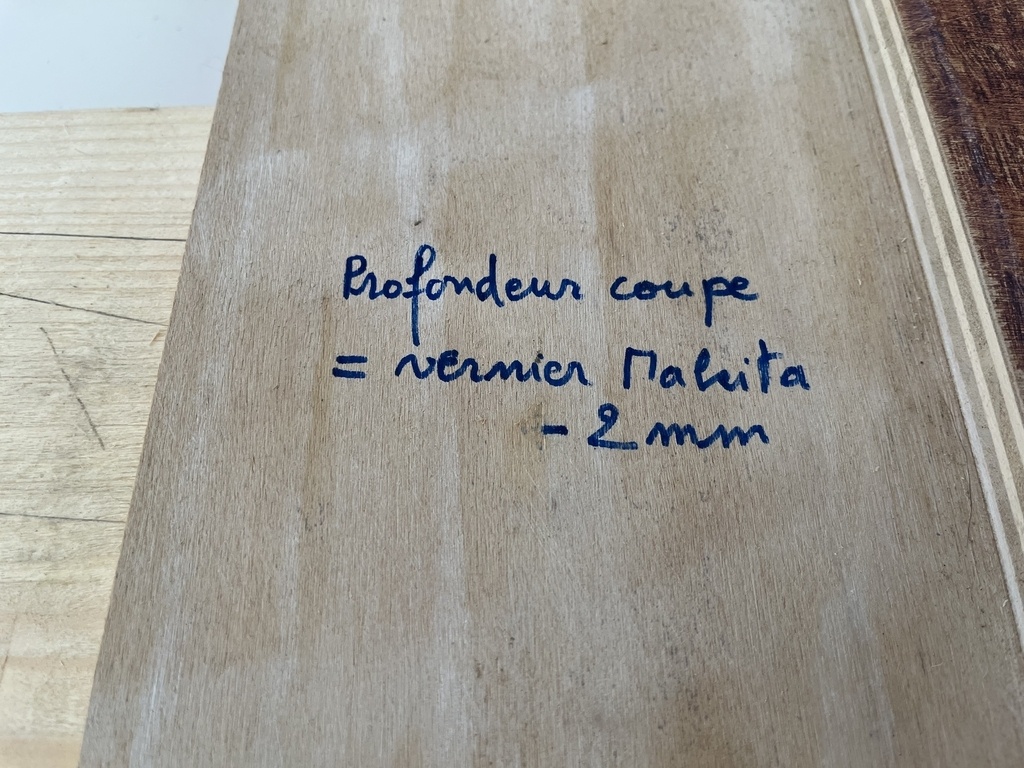 Profondeur coupe
= vernier Makita
- 2 mm